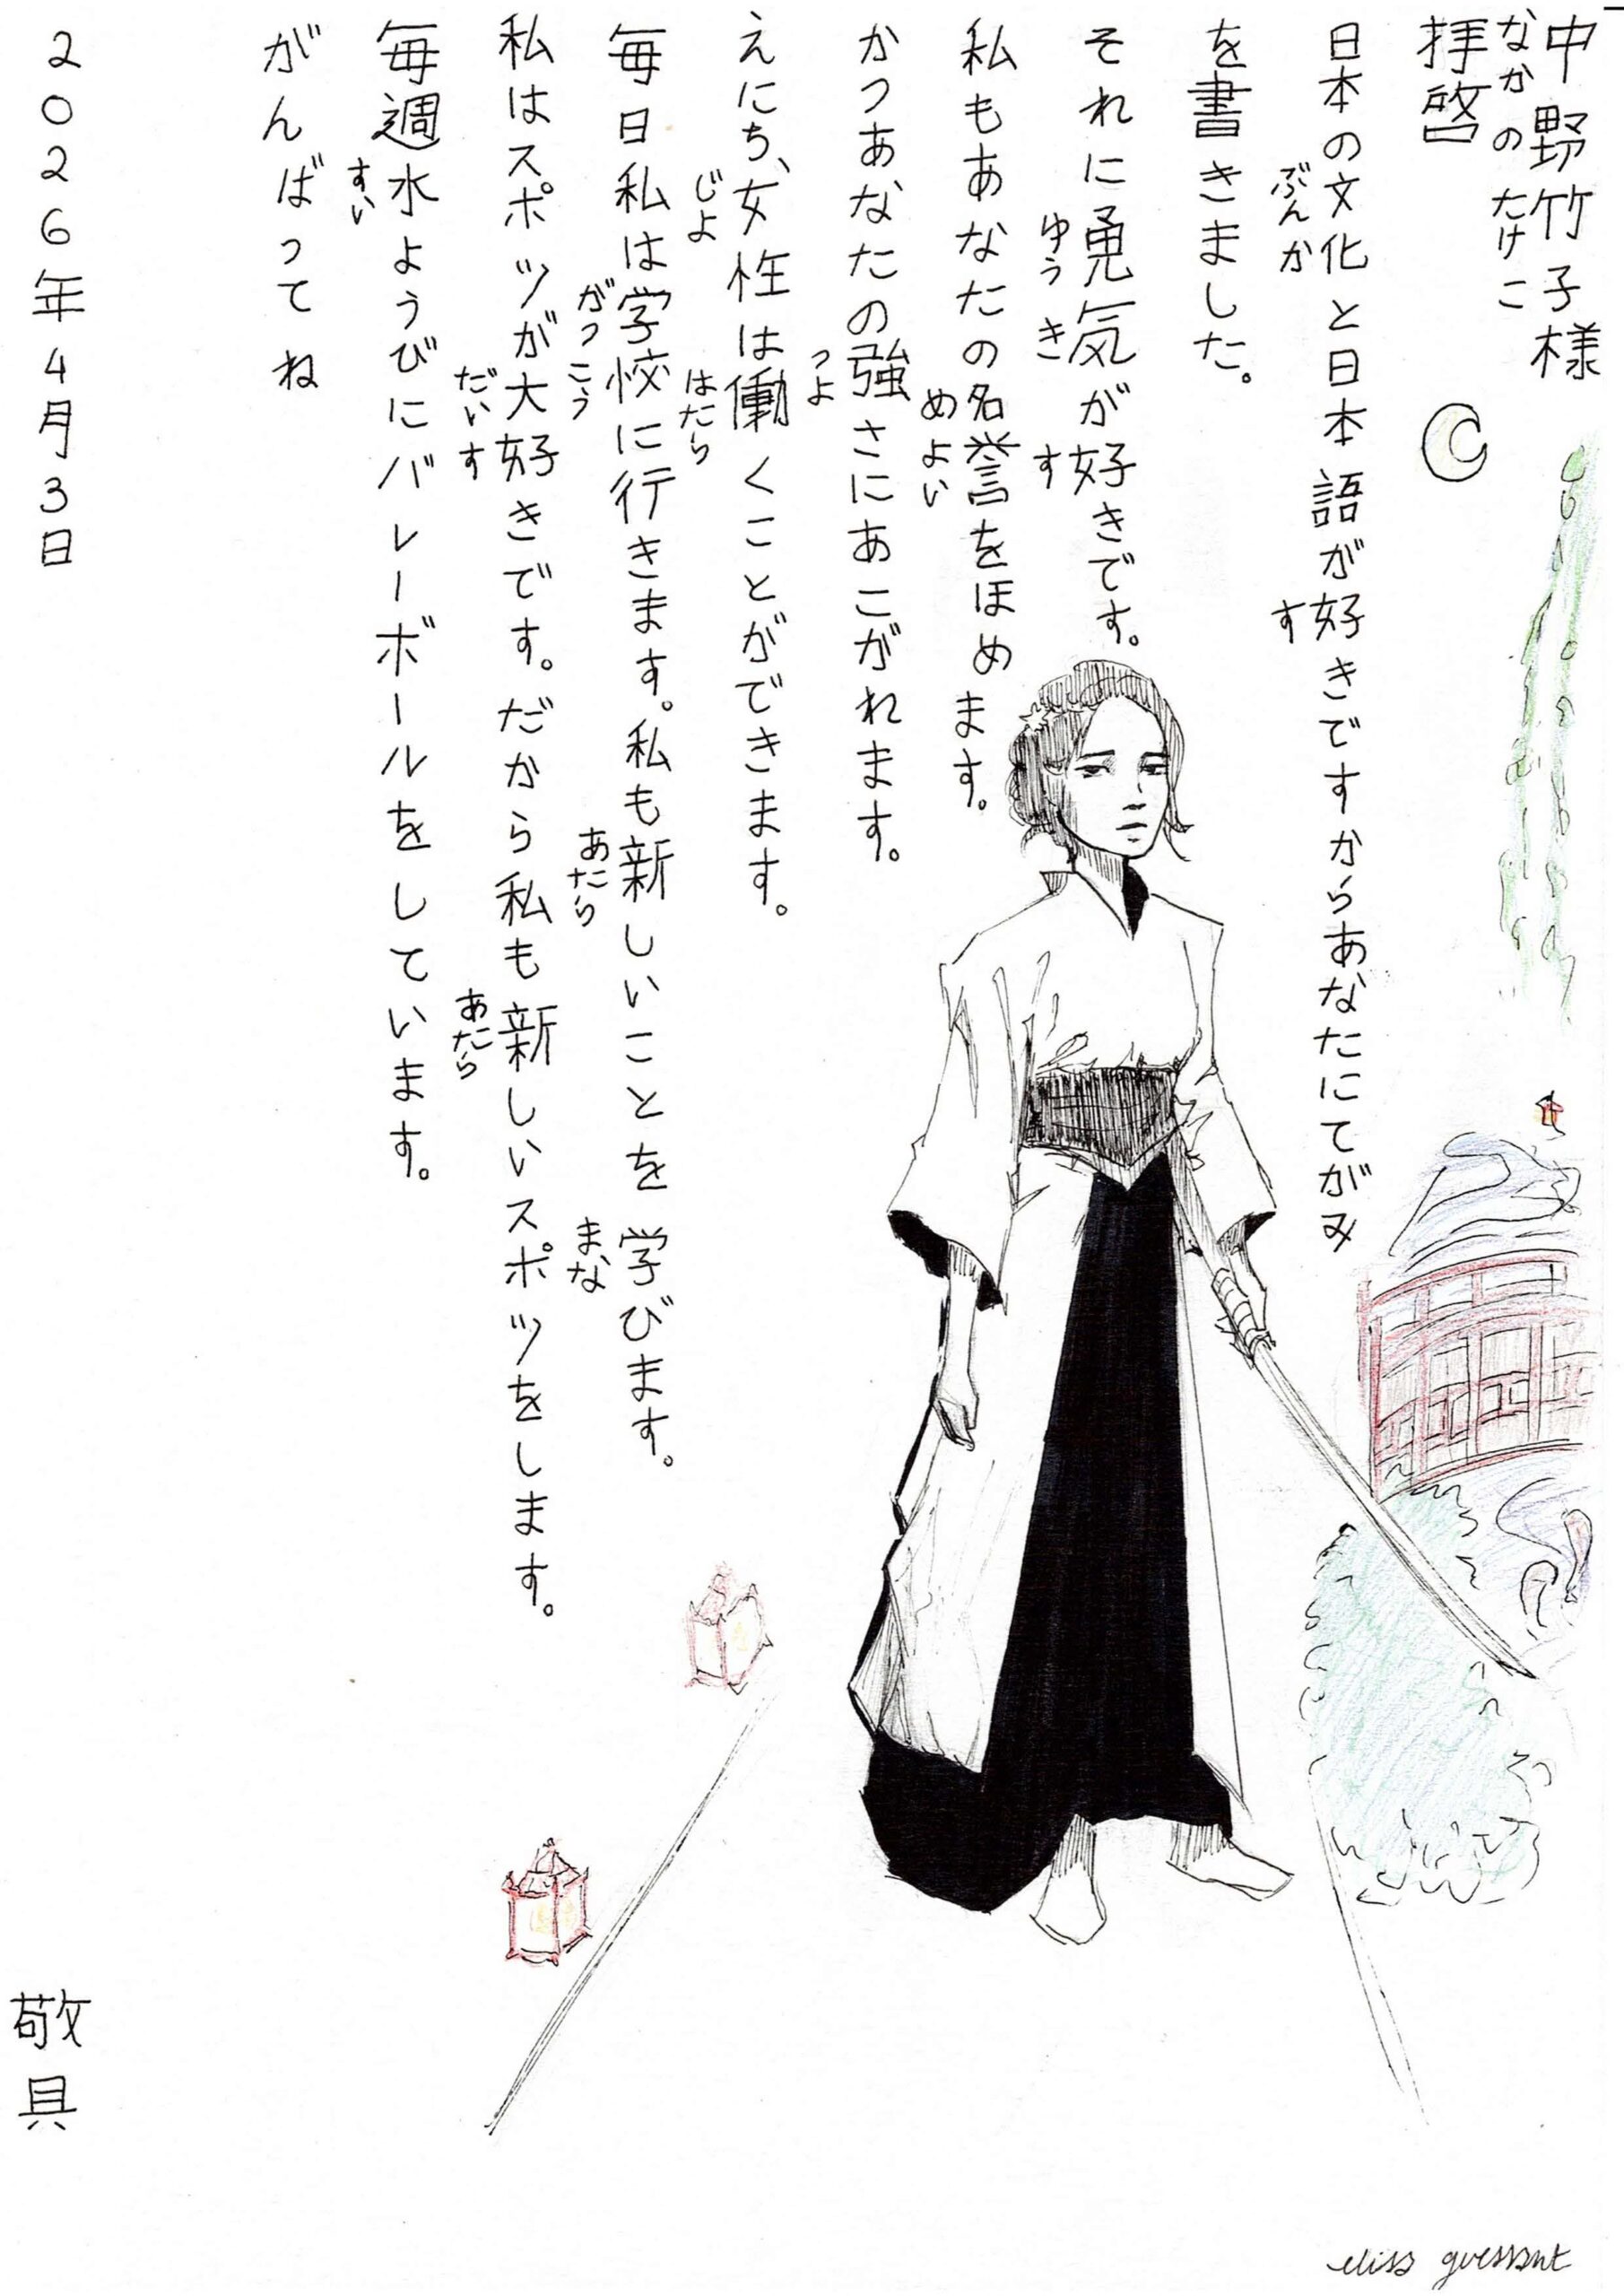 中野竹子様
なかの たけこ
拝啓
日本の文化と日本語が好きですからあなたにてがみ
ぶんか す
を書きました。
それに勇気が好きです。
ゆうき す
私もあなたの名誉をほめます。
めよい
かつあなたの強さにあこがれます。
つよ
えにち、女性は働くことができます。
じよ はたら
毎日私は学校に行きます。私も新しいことを学びます。
がっこう あたら まな
私はスポツが大好きです。だから私も新しいスポツをします。
だいす あたら
毎週水ようびにバレーボールをしています。
すい
がんばってね
2026年4月3日
敬具